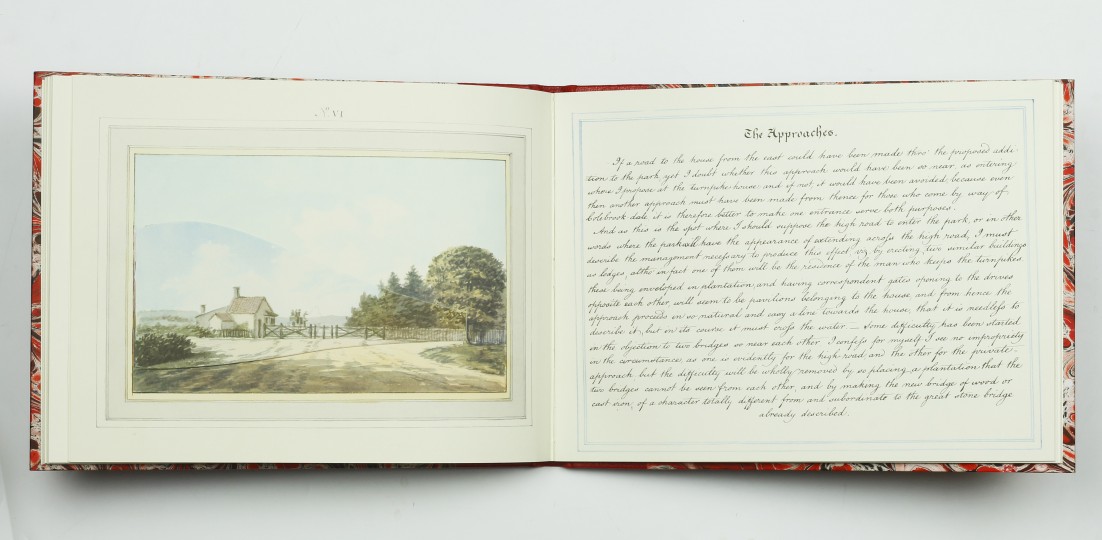 No VI
The Approaches.
If a road to the house from the east could have been made thro' the proposed addi-
tion to the park, yet I doubt whether this approach would have been so near, as entering
where I propose at the turnpike house, and if not, it would have been avoided, because even
then another approach must have been made from thence for those who come by way of
Colebrook dale it is therefore better to make one entrance serve both purposes.
And as this is the spot where I should suppose the high road to enter the park, or in other
words where the park will have the appearance of extending across the high road, I must
describe the management necessary to produce this effect viz by erecting two similar buildings
as lodges, altho in fact one of them will be the residence of the man who keeps the turnpike.
these being enveloped in plantation, and having correspondent gates opening to the drives
opposite each other will seem to be pavilions belonging to the house and from hence the
approach proceeds in so natural and easy a line towards the house, that it is needless to
describe it, but in its course it must cross the water — Some difficulty has been started
in the objection to two bridges so near each other. I confess for myself I see no impropriety
in the circumstance, as one is evidently for the high road and the other for the private
approach but the difficulty will be wholly removed by so placing a plantation that the
two bridges cannot be seen from each other, and by making the new bridge of wood or
cast iron, of a character totally different from and subordinate to the great stone bridge
already described.